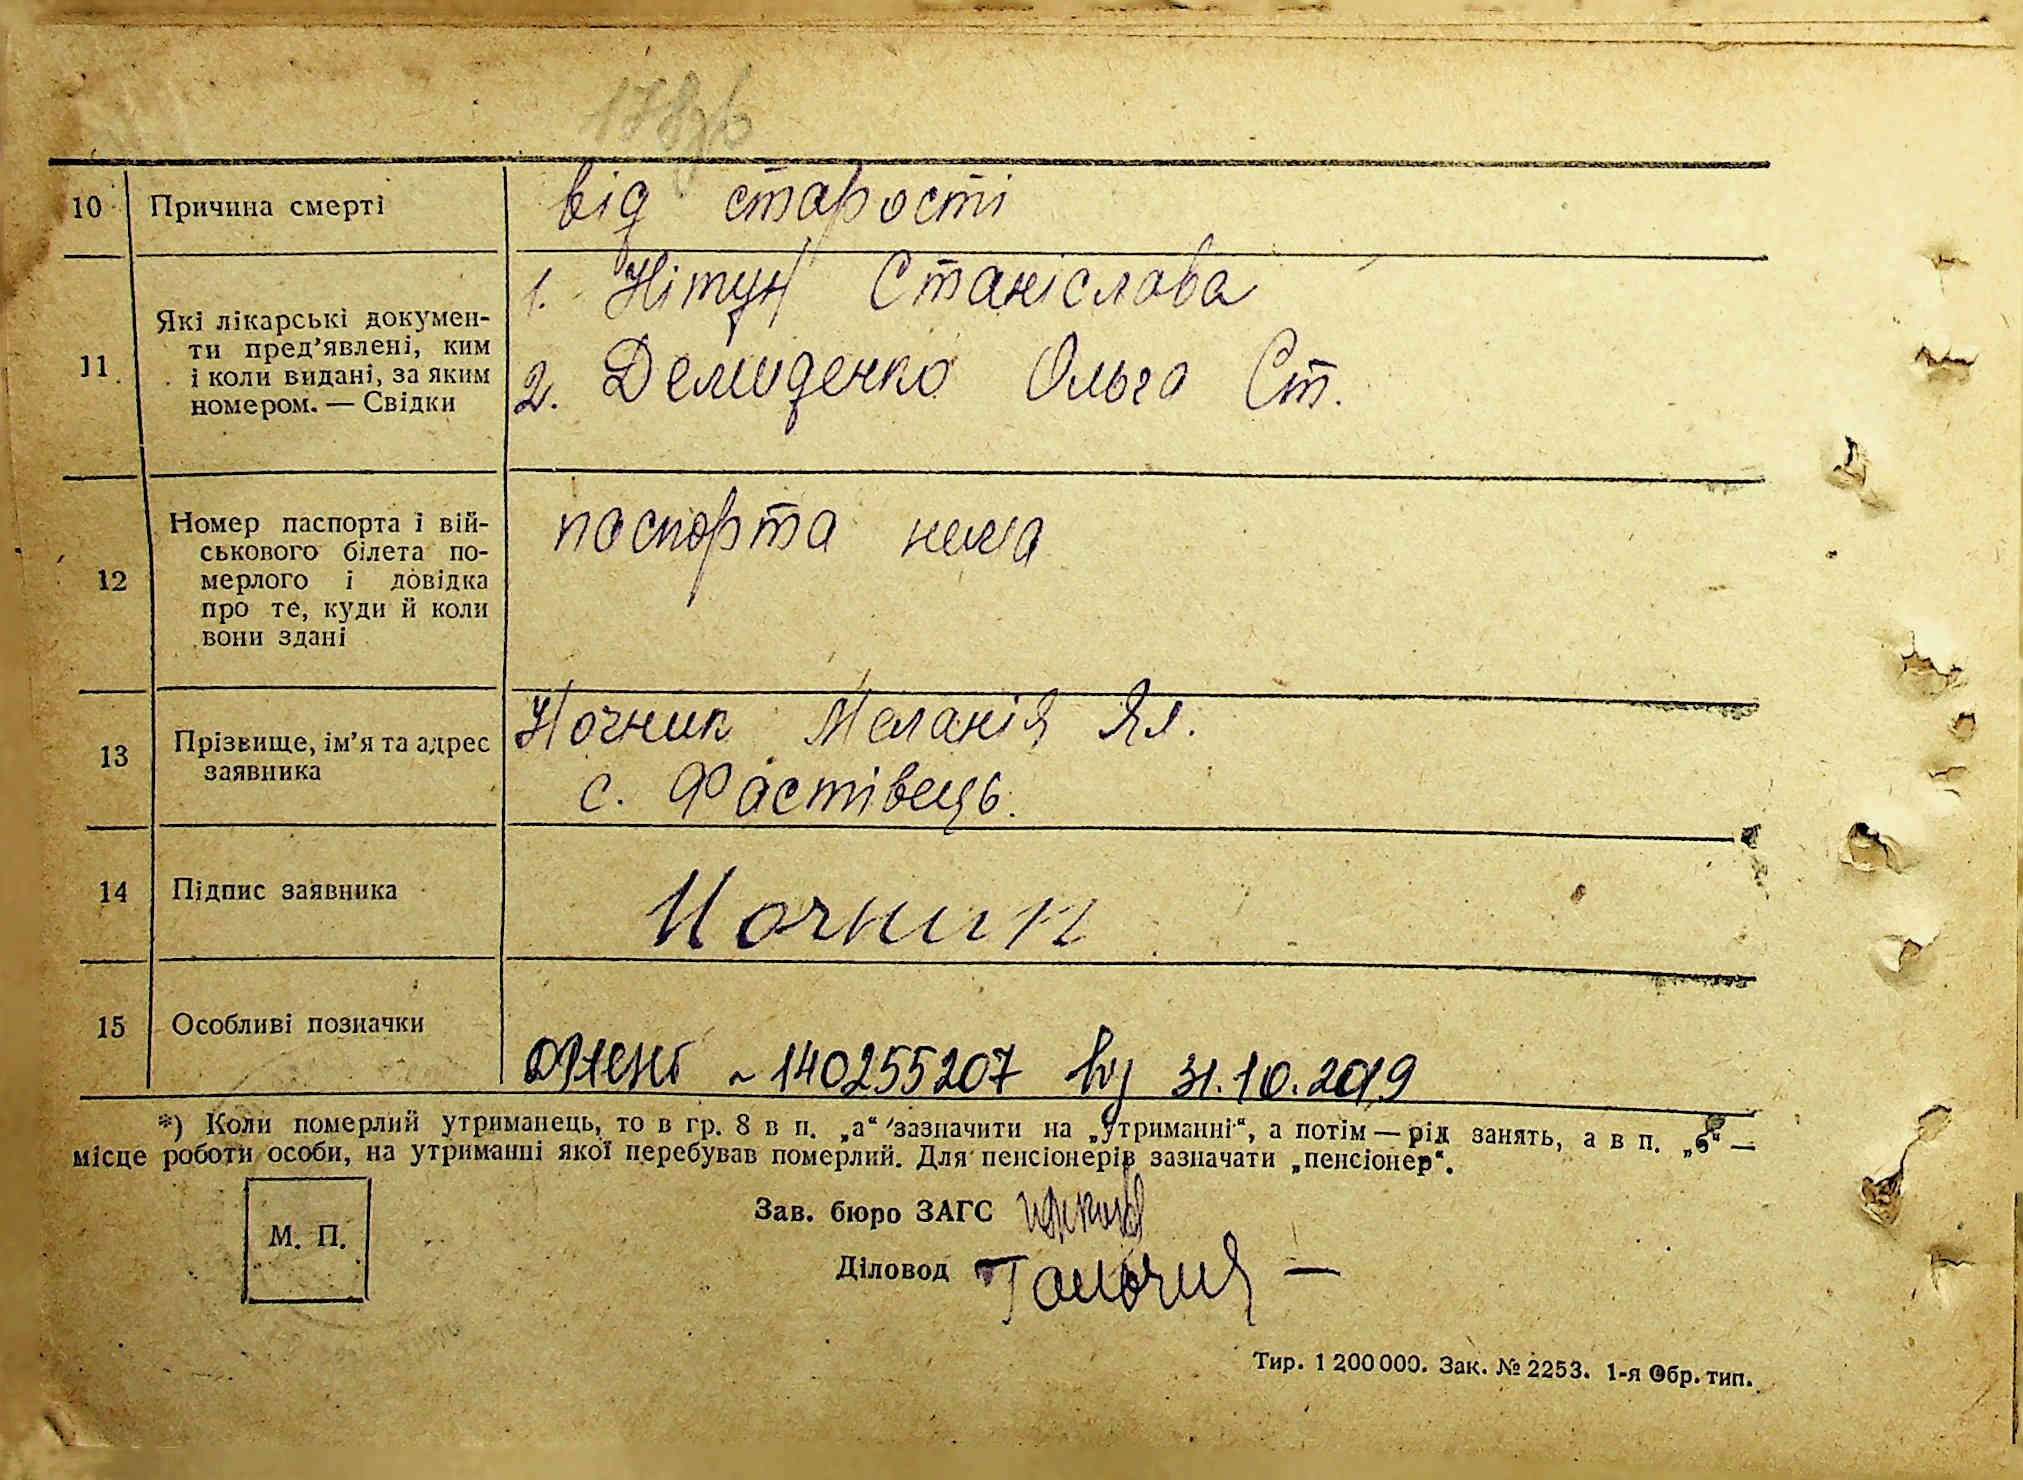 10 Причина смерті від старості
11 Які лікарські докумен-
ти пред’явлені, ким
і коли видані, за яким
номером. — Свідки
1. Станіслава
2. Демиденко Ольга Ст.
12 Номер паспорта і вій-
ськового білета по-
мерлого і довідка
про те, куди й коли
вони здані
паспорта нема
13 Прізвище, ім’я та адрес
заявника
Ночник Меланія Ял.
с. Фастівець.
14 Підпис заявника Ночник
15 Особливі позначки
140255207 31.10.2019
*) Коли померлий утриманець, то в гр. 8 в п. „а“ зазначити на „утриманні“, а потім — рід занять, а в п. „б“ —
місце роботи особи, на утриманні якої перебував померлий. Для пенсіонерів зазначати „пенсіонер“.
М. П.
Зав. бюро ЗАГС
Діловод
Тир. 1 200 000. Зак. № 2253. 1-я Обр. тип.